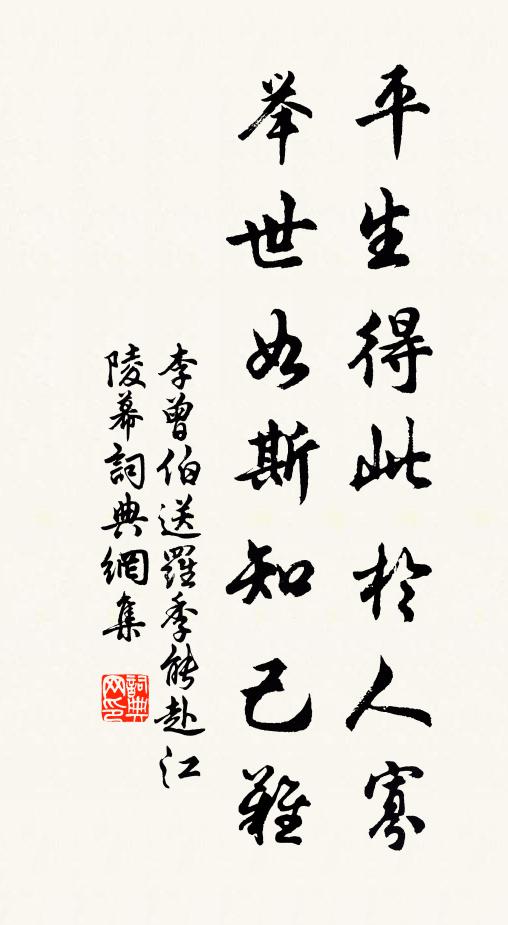 平生得此於人寡
举世如斯知己難
李曾伯送羅季能赴江
陵幕詞典網集
詞典网印